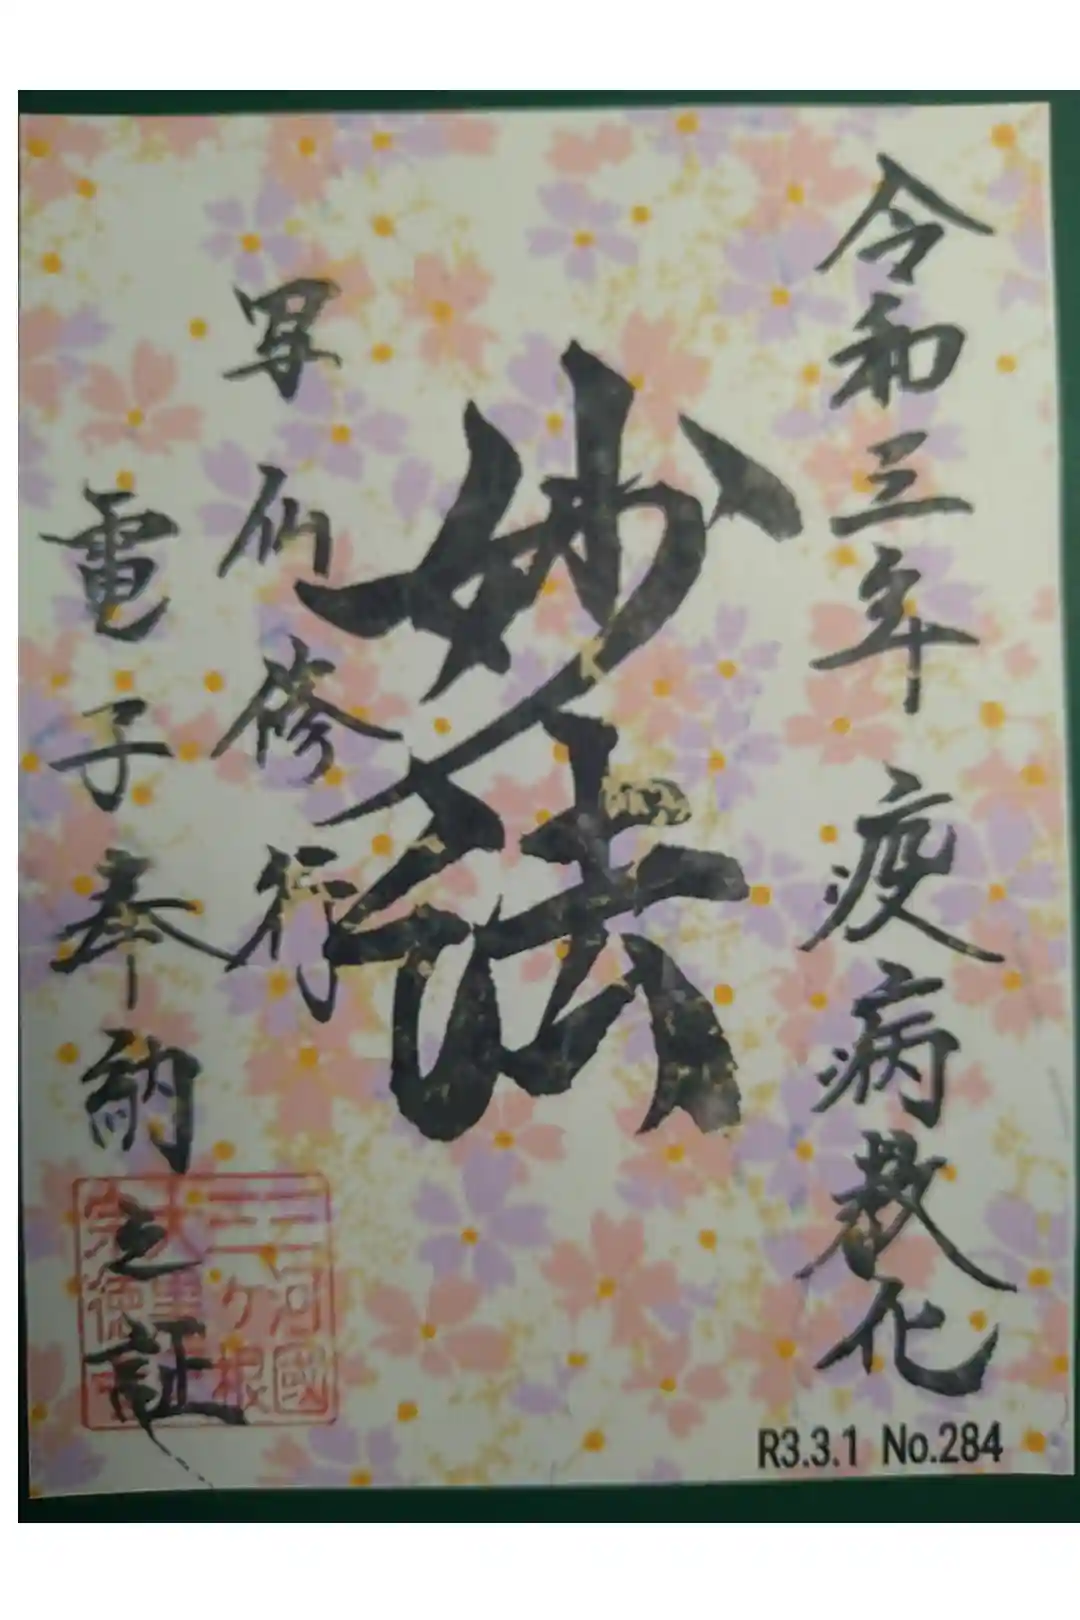 令和三年 疫病教化
妙法
写仏修行
電子奉納之証
三河國
ヶ根
R3.3.1 No.284